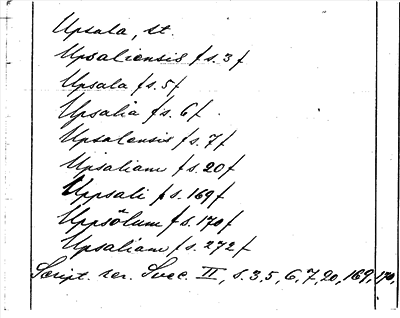 Upsala, st.
Upsaliensis f s. 3 f
Upsala f s. 5 f
Upsalia f s. 6 f.
Upsalensis f s. 7 f
Upsaliam f s. 20 f
Uppsali f s. 169 f
Uppsölum f s. 170 f
Upsaliam f s. 272 f
Script. rer. Svec. III, s. 3, 5, 6, 7, 20, 169, 170,